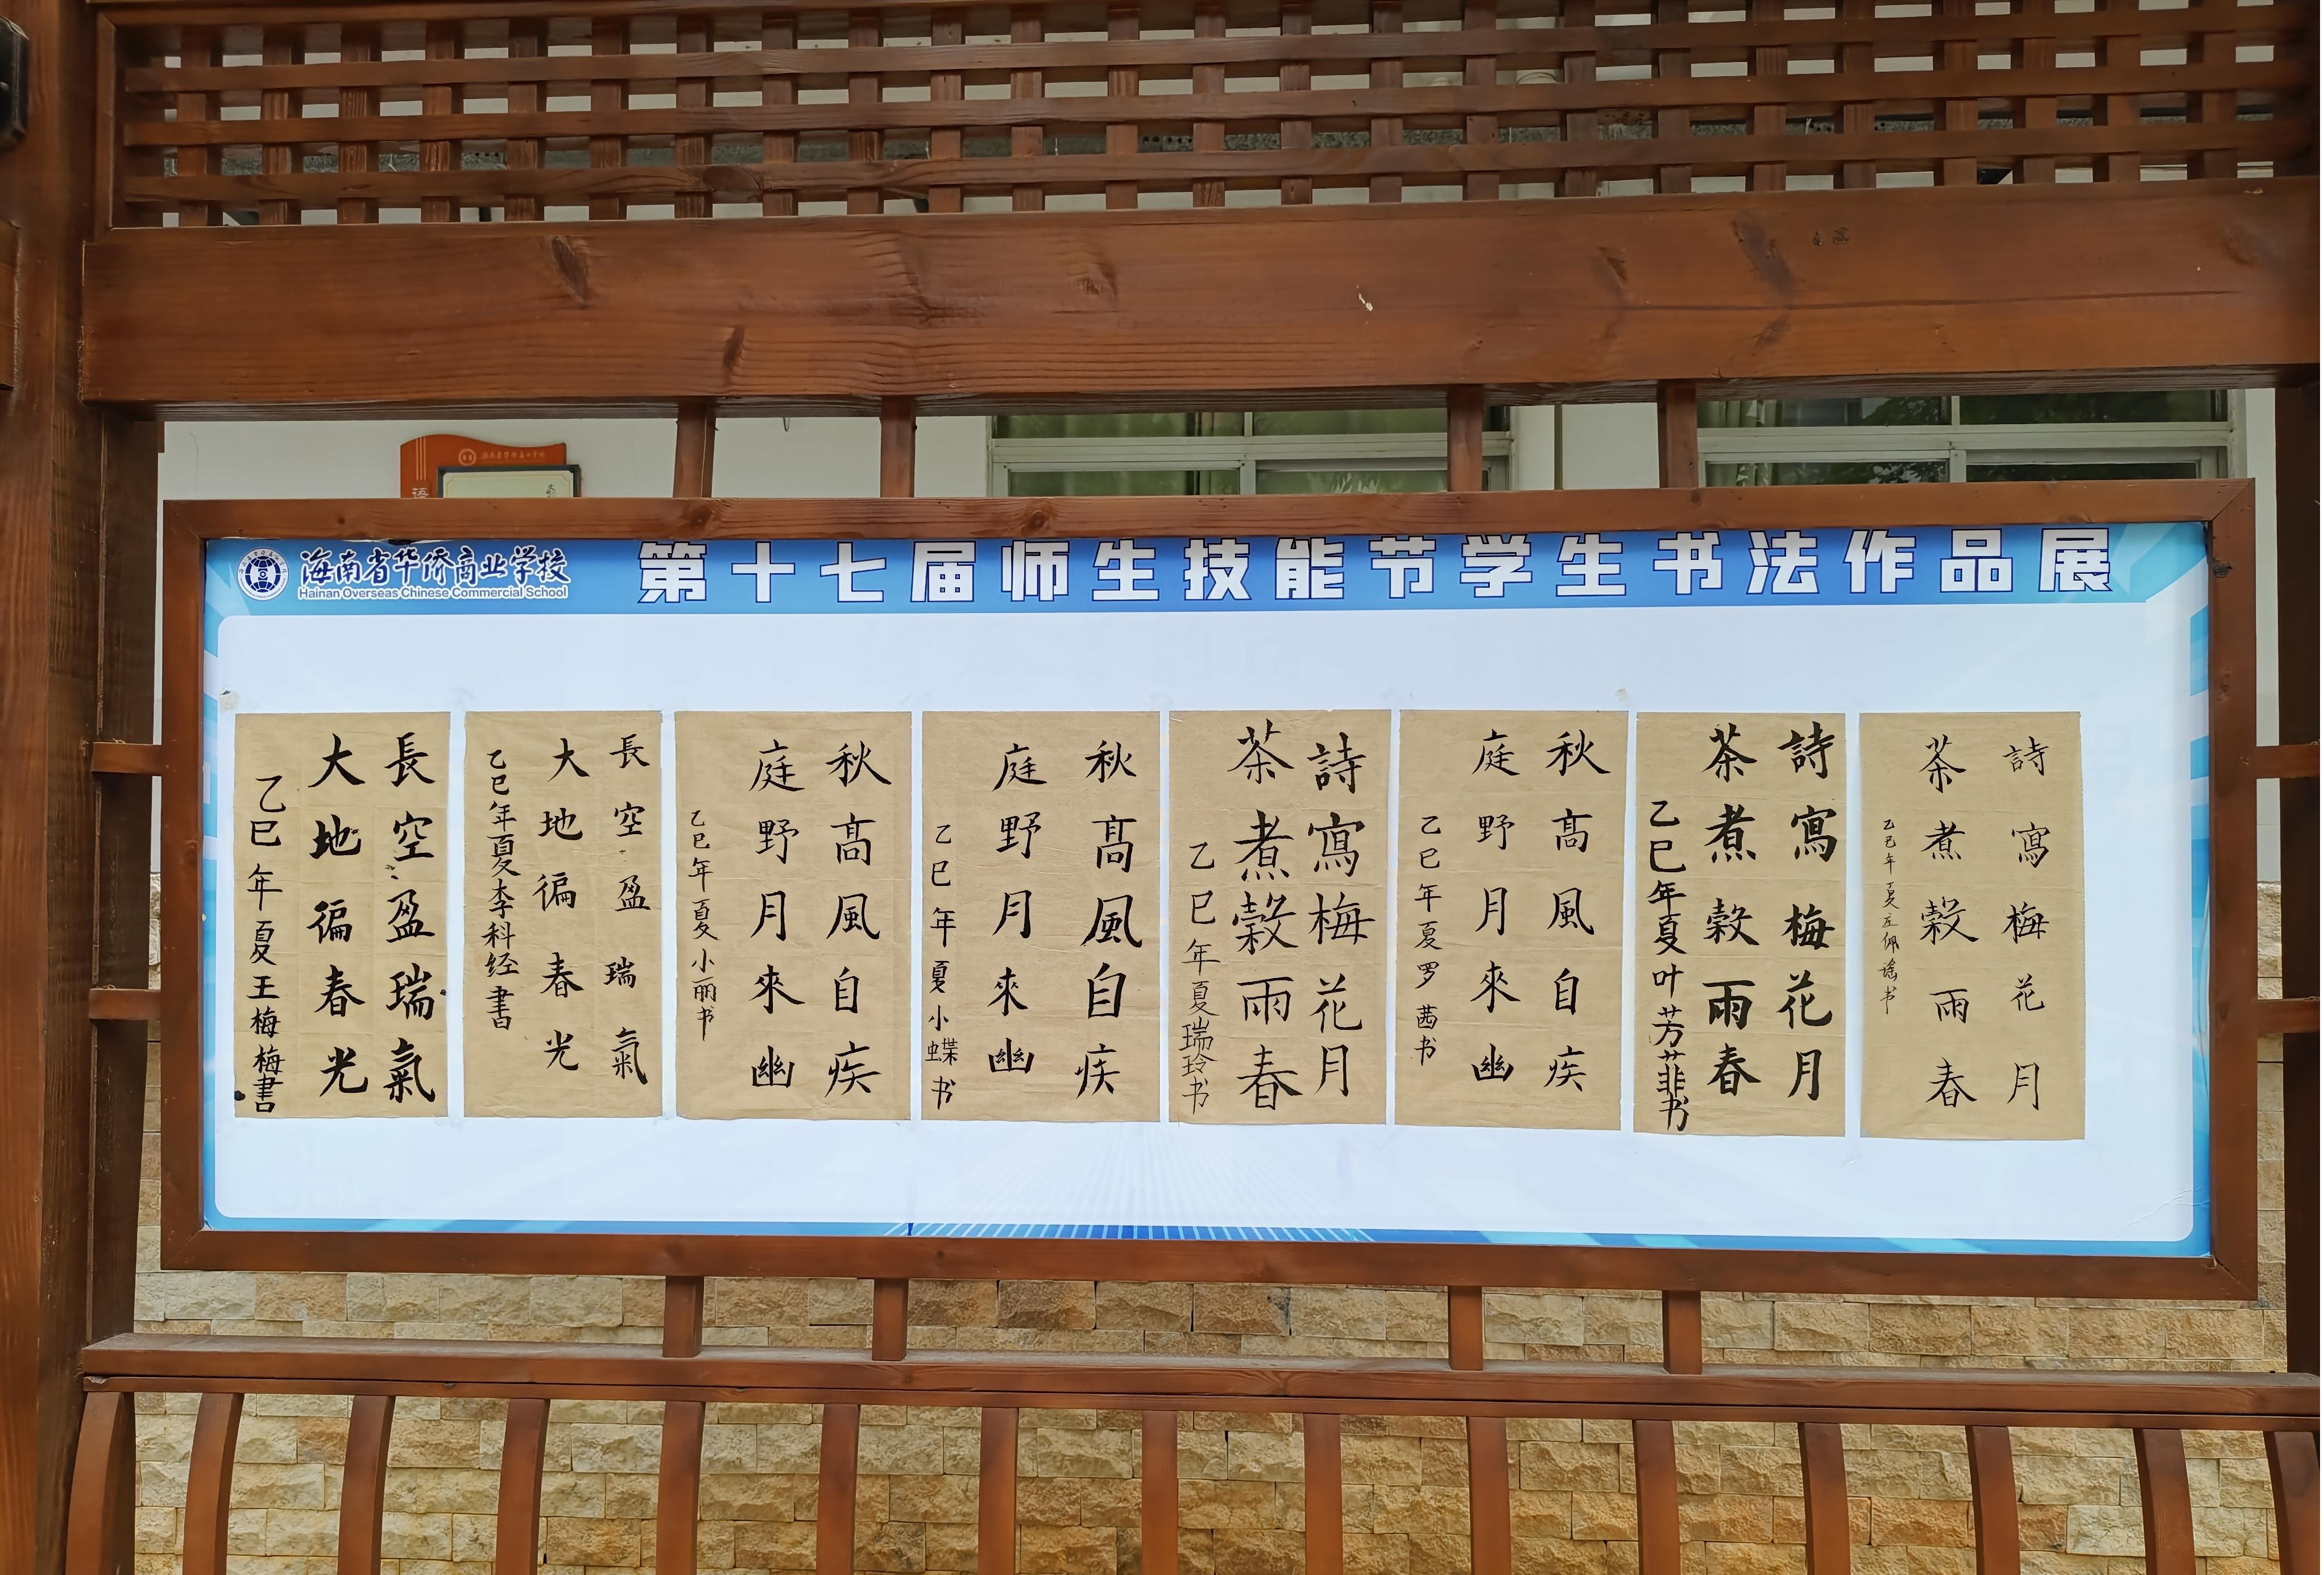 海南省华侨商业学校
Hainan Overseas Chinese Commercial School
第十七届师生技能节学生书法作品展
詩寫梅花月
茶煮穀雨春
乙巳年夏左佩谣书
詩寫梅花月
茶煮穀雨春
乙巳年夏叶芳菲书
秋髙風自疾
庭野月來幽
乙巳年夏罗茜书
詩寫梅花月
茶煮穀雨春
乙巳年夏瑞玲书
秋髙風自疾
庭野月來幽
乙巳年夏小蝶书
秋髙風自疾
庭野月來幽
乙巳年夏小丽书
長空盈瑞氣
大地徧春光
乙巳年夏李科经書
長空盈瑞氣
大地徧春光
乙巳年夏王梅梅書